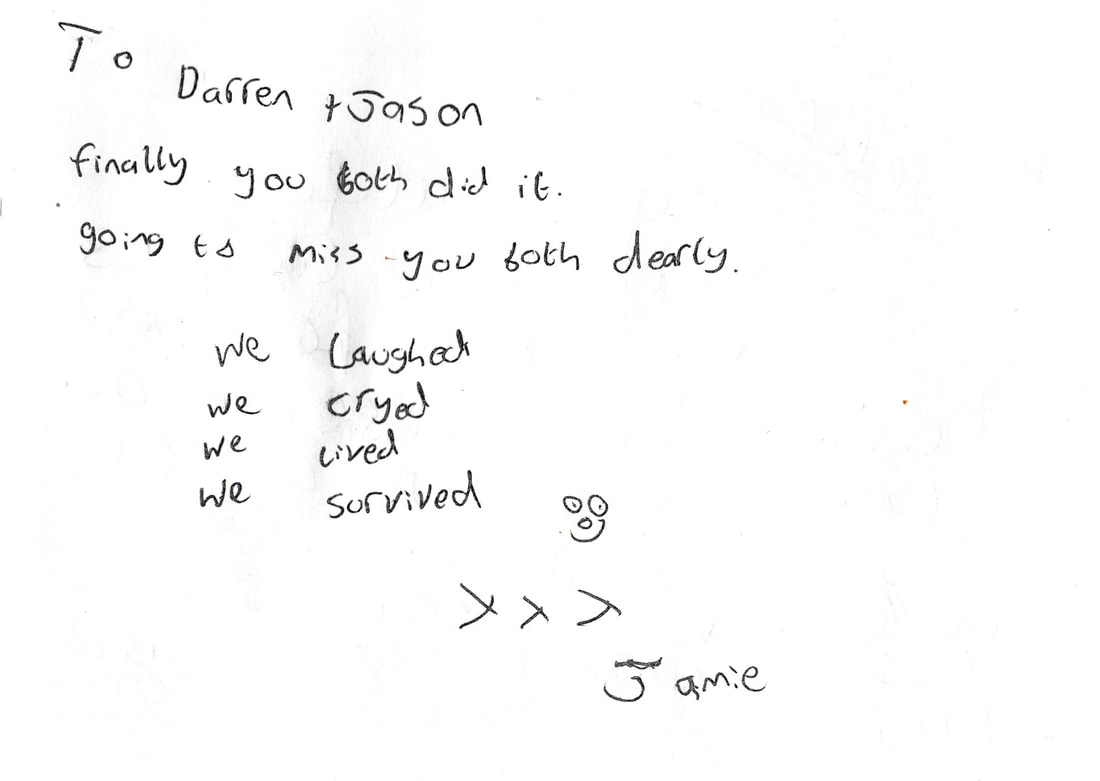 To
Darren + Jason
finally you both did it.
going to miss you both dearly.
we Laughed
we cryed
we lived
we survived
xxx
Jamie